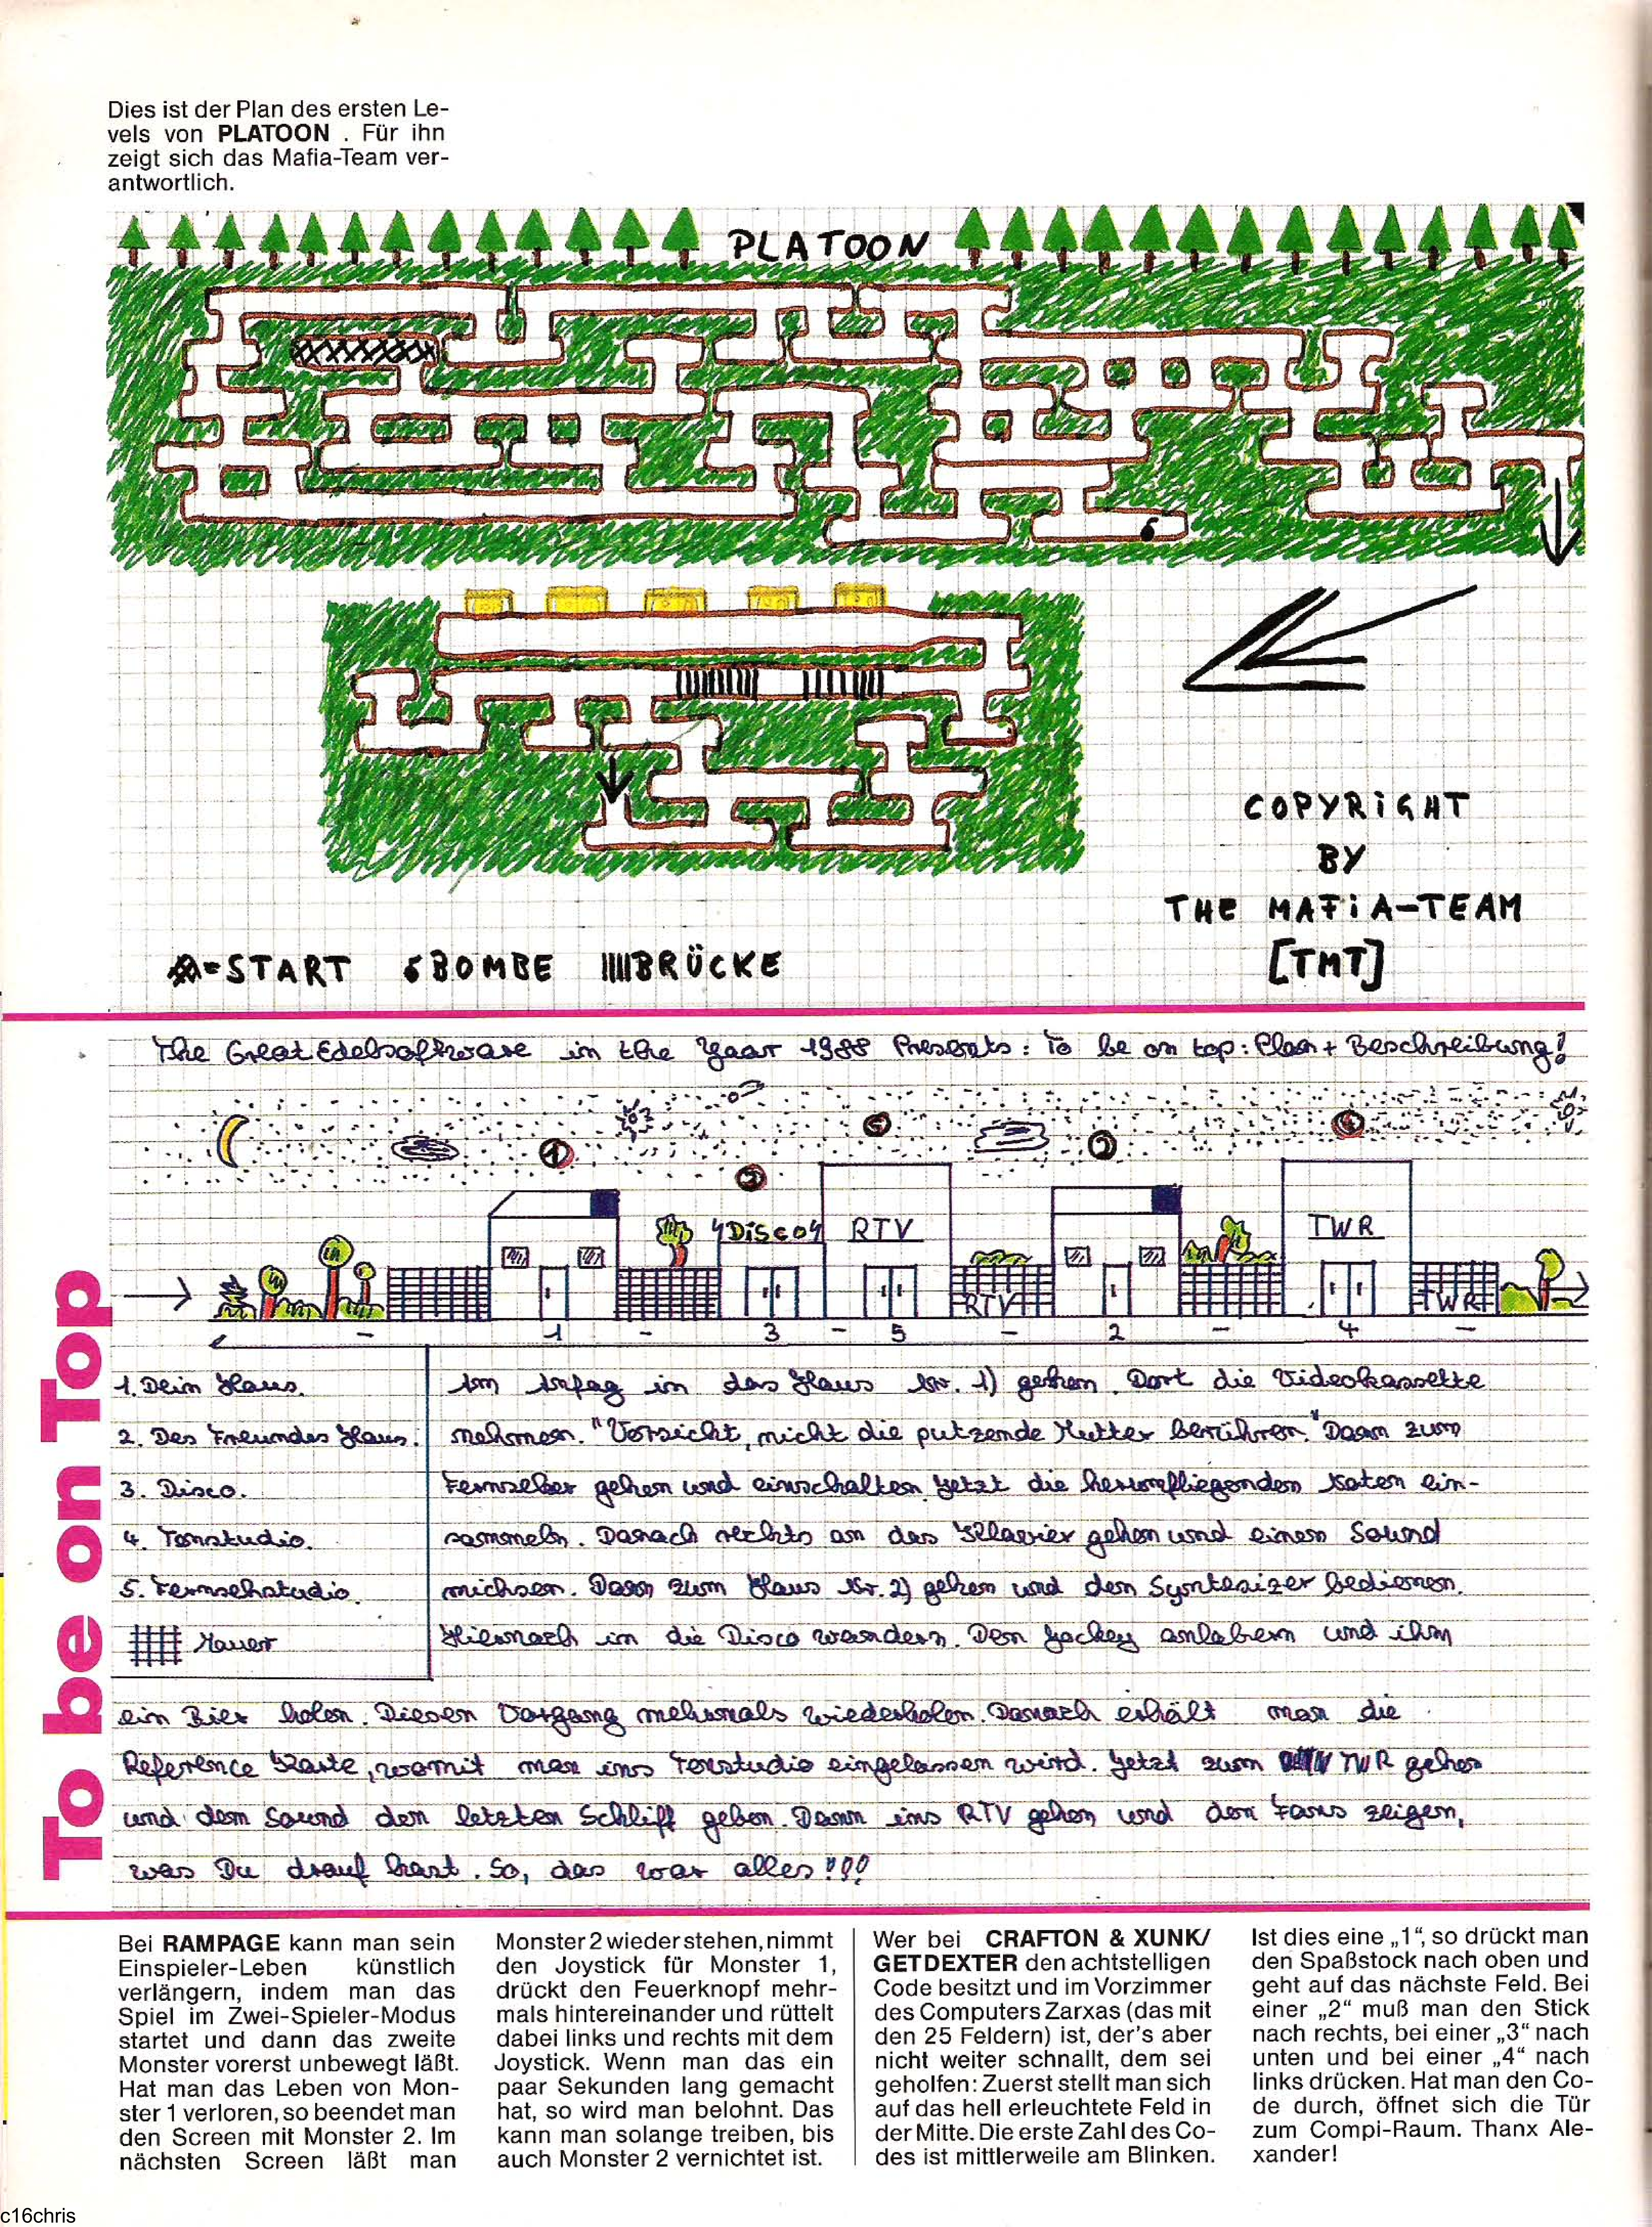 Dies ist der Plan des ersten Le-
vels von PLATOON . Für ihn
zeigt sich das Mafia-Team ver-
antwortlich.
PLATOON
COPYRIGHT
BY
THE MAFIA-TEAM
[TMT]
=START BOMBE BRÜCKE
To be on Top
The Great Edelsoftware in the Yaar 1988 Presents: To be on top: Plan + Beschreibung!
1 5 2 4
3
4Disco4 RTV TWR
RTV TWR
- 1 - 3 - 5 - 2 - 4 -
1. Dein Haus.
2. Des Freundes Haus.
3. Disco.
4. Tonstudio.
5. Fernsehstudio.
Mauer
Am Anfag in das Haus Nr. 1) gehen. Dort die Videokassette
nehmen. "Vorsicht, nicht die putzende Mutter berühren." Dann zum
Fernseher gehen und einschalten. Jetzt die herumfliegenden Noten ein-
sammeln. Danach rechts an das Klavier gehen und einen Sound
michsen. Dann zum Haus Nr. 2) gehen und den Syntesizer bedienen.
Hiernach in die Disco wandern. Den Jockey anlabern und ihm
ein Bier holen. Diesen Vorgang mehrmals wiederholen. Danach erhält man die
Reference Karte, womit man ins Tonstudio eingelassen wird. Jetzt zum TWR gehen
und dem Sound den letzten Schliff geben. Dann ins RTV gehen und den Fans zeigen,
was Du drauf hast. So, das war alles!!!
Bei RAMPAGE kann man sein
Einspieler-Leben künstlich
verlängern, indem man das
Spiel im Zwei-Spieler-Modus
startet und dann das zweite
Monster vorerst unbewegt läßt.
Hat man das Leben von Mon-
ster 1 verloren, so beendet man
den Screen mit Monster 2. Im
nächsten Screen läßt man
Monster 2 wieder stehen, nimmt
den Joystick für Monster 1,
drückt den Feuerknopf mehr-
mals hintereinander und rüttelt
dabei links und rechts mit dem
Joystick. Wenn man das ein
paar Sekunden lang gemacht
hat, so wird man belohnt. Das
kann man solange treiben, bis
auch Monster 2 vernichtet ist.
Wer bei CRAFTON & XUNK/
GETDEXTER den achtstelligen
Code besitzt und im Vorzimmer
des Computers Zarxas (das mit
den 25 Feldern) ist, der's aber
nicht weiter schnallt, dem sei
geholfen: Zuerst stellt man sich
auf das hell erleuchtete Feld in
der Mitte. Die erste Zahl des Co-
des ist mittlerweile am Blinken.
Ist dies eine „1“, so drückt man
den Spaßstock nach oben und
geht auf das nächste Feld. Bei
einer „2“ muß man den Stick
nach rechts, bei einer „3“ nach
unten und bei einer „4“ nach
links drücken. Hat man den Co-
de durch, öffnet sich die Tür
zum Compi-Raum. Thanx Ale-
xander!
c16chris